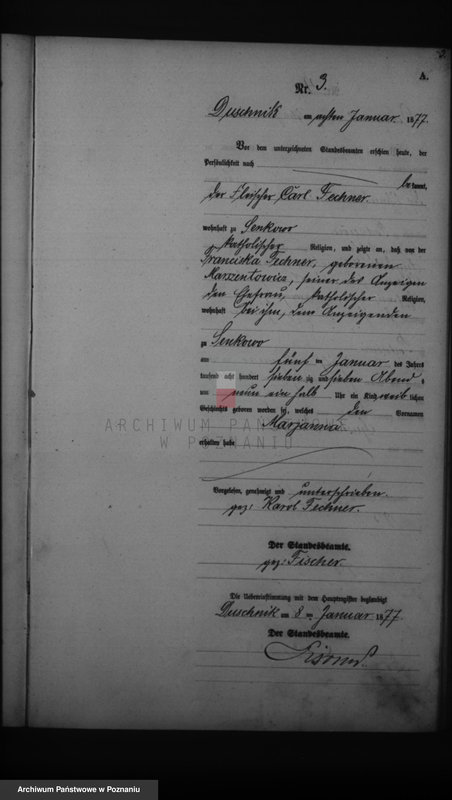 2.
A.
Nr. 3.
Duschnik am achten Januar 1877.
Vor dem unterzeichneten Standesbeamten erschien heute, der
Persönlichkeit nach
bekannt,
der Fleischer Carl Fechner
wohnhaft zu Senkowo
katholischer Religion, und zeigte an, daß von der
Franciska Fechner, geborenen
Marszentowicz, seiner des Anzeigen
den Ehefrau, katholischer Religion,
wohnhaft bei ihm, dem Anzeigenden
zu Senkowo
am fünf ten Januar des Jahres
tausend acht hundert sieben zig und sieben Abend s
um neun ein halb Uhr ein Kind weib lichen
Geschlechts geboren worden sei, welches den Vornamen
Marjanna
erhalten habe.
Vorgelesen, genehmigt und unterschrieben.
gez: Karol Fechner.
Der Standesbeamte.
gez: Fischer
Die Uebereinstimmung mit dem Hauptregister beglaubigt
Duschnik am 8 ten Januar 1877.
Der Standesbeamte.
ARCHIWUM PAŃSTWOWE
W POZNANIU
Archiwum Państwowe w Poznaniu